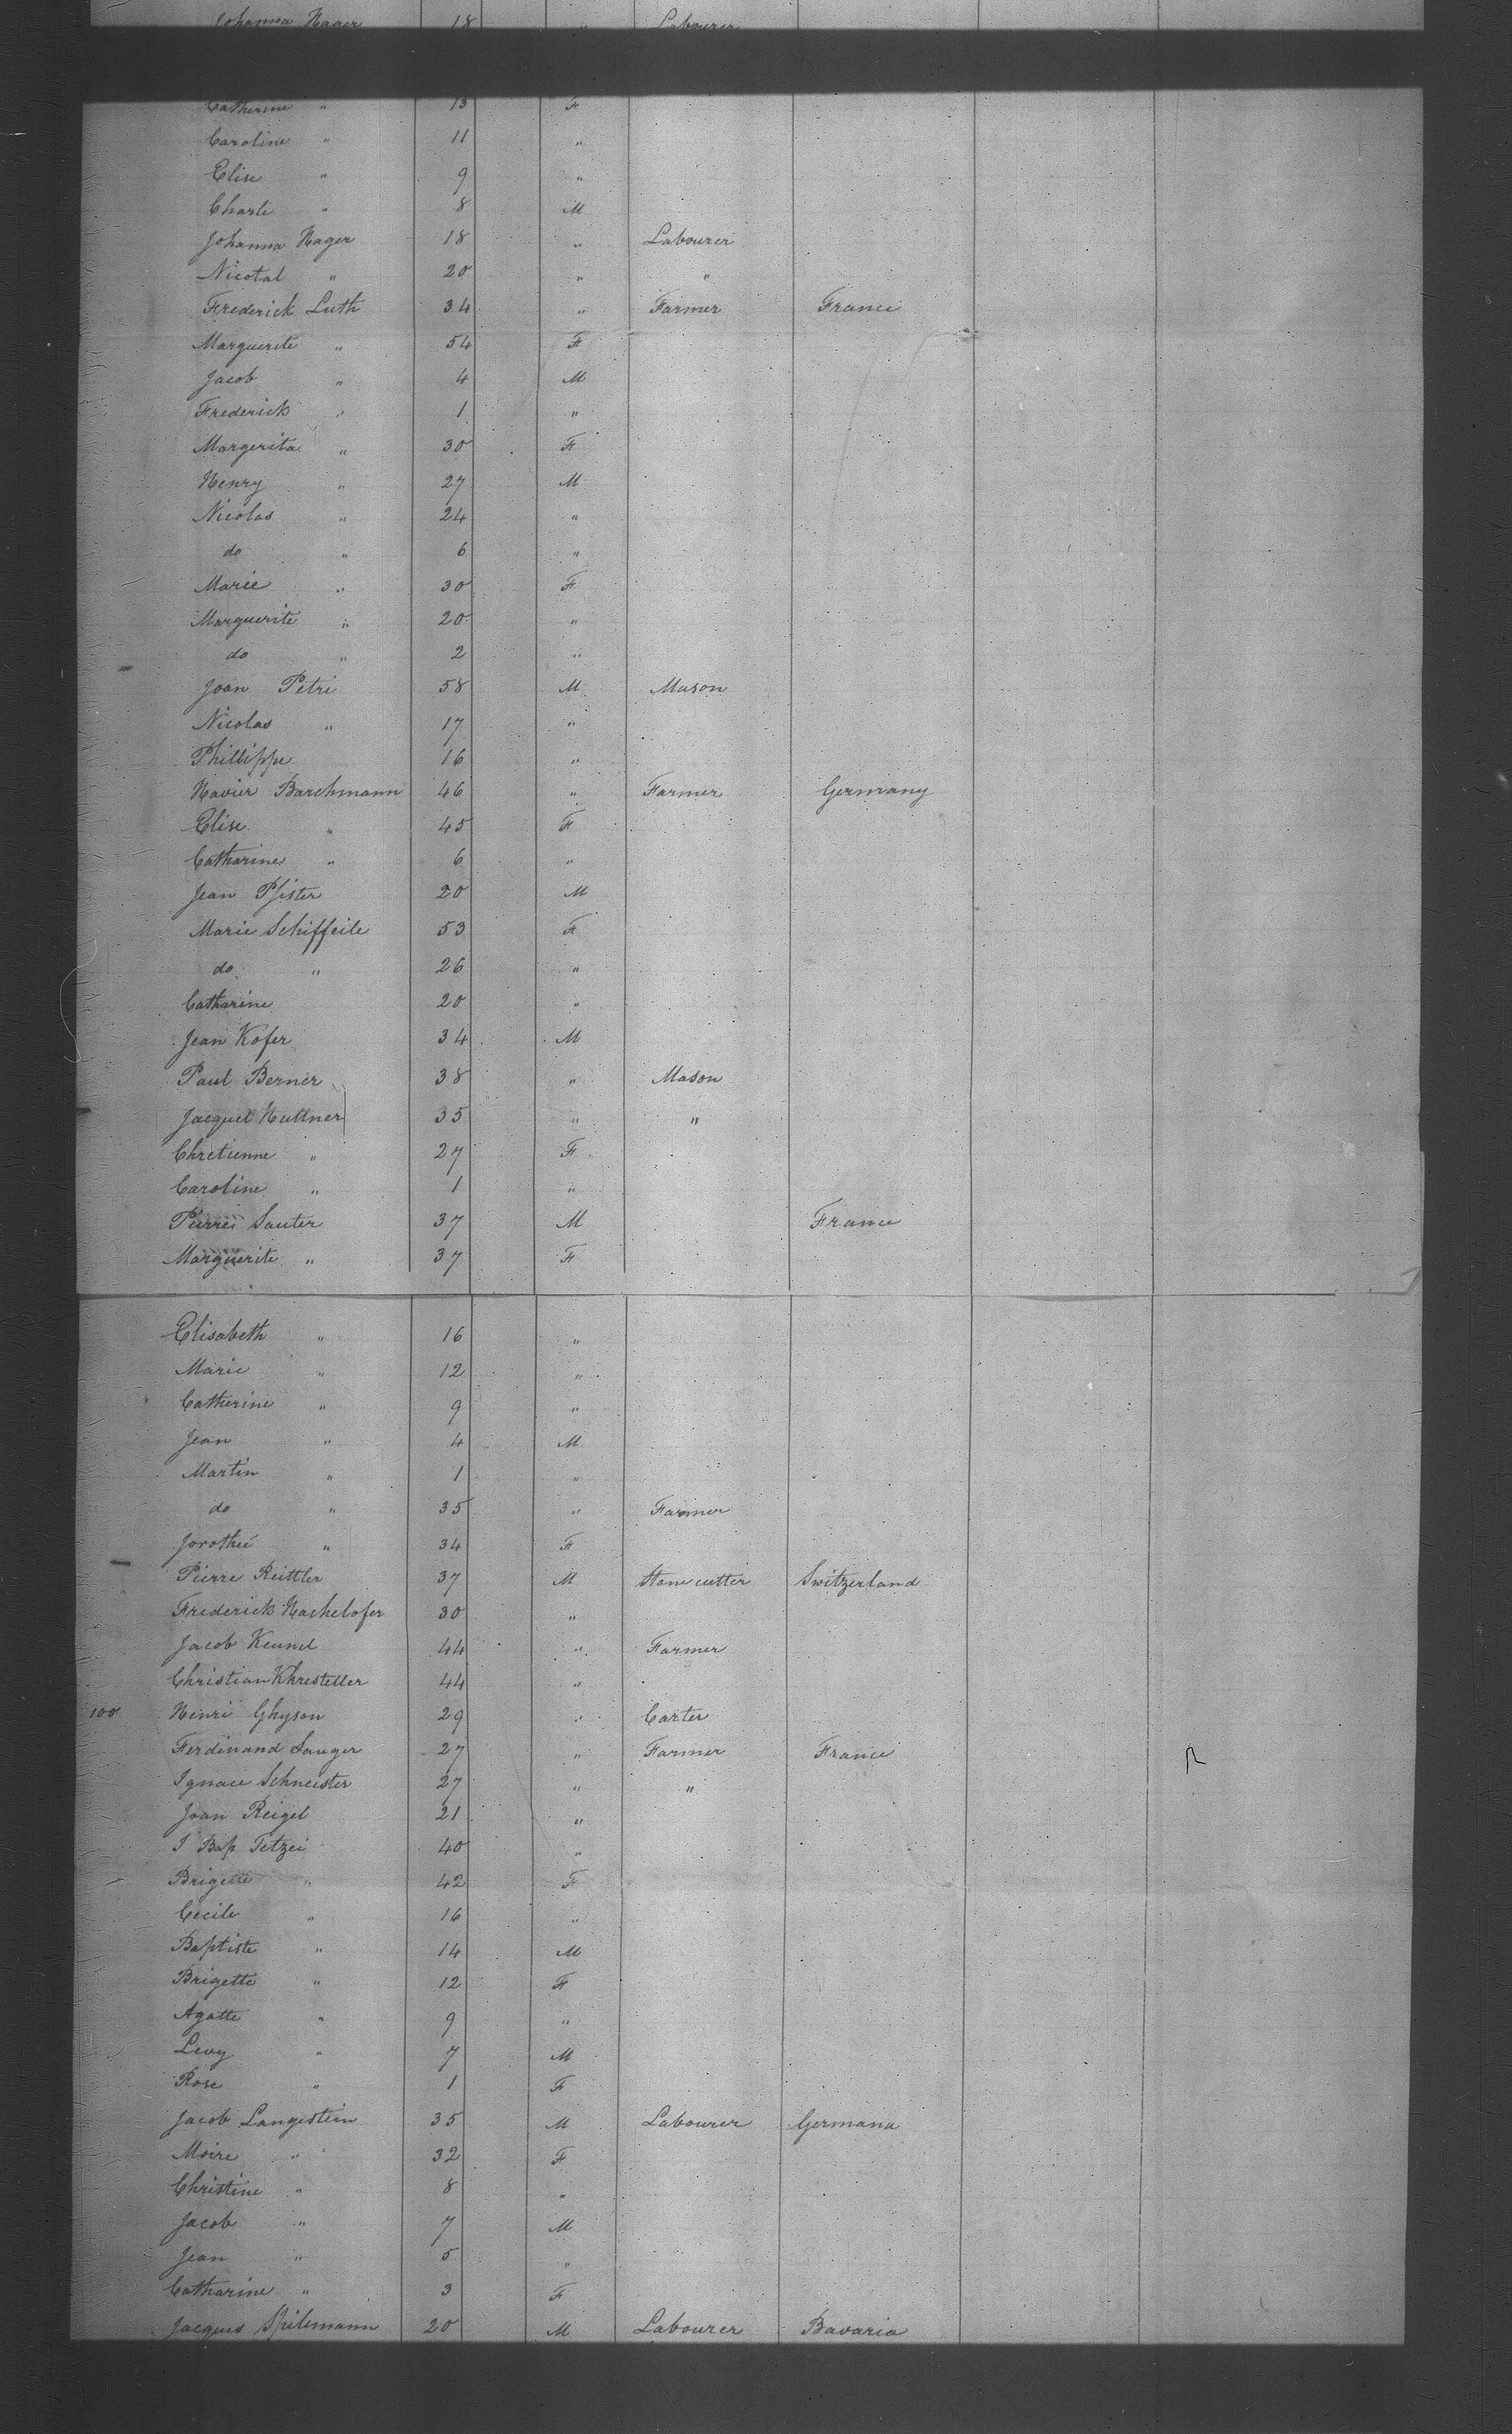 Johanna Hager 18 " Labourer
Catherine " 13 F
Caroline " 11 "
Elise " 9 "
Charli " 8 M
Johanna Hager 18 " Labourer
Nicotal " 20 " "
Frederick Luth 34 " Farmer France
Marguerite " 54 F
Jacob " 4 M
Frederick " 1 "
Margerita " 30 F
Henry " 27 M
Nicolas " 24 "
do " 6 "
Marie " 30 F
Marguerite " 20 "
do " 2 "
Joan Petri 58 M Mason
Nicolas " 17 "
Phillippe 16 "
Xavier Barchmann 46 " Farmer Germany
Elise " 45 F
Catharine " 6 "
Jean Pfister 20 M
Marie Schiffeile 53 F
do " 26 "
Catharine 20 "
Jean Kofer 34 M
Paul Berner 38 " Mason
Jacquel Huttner 35 " "
Chretienne " 27 F
Caroline " 1 "
Pierre Sauter 37 M France
Marguerite " 37 F
Elisabeth " 16 "
Marie " 12 "
Catherine " 9 "
Jean " 4 M
Martin " 1 "
do " 35 " Farmer
Jorotheé " 34 F
Pierre Reittler 37 M Stone cutter Switzerland
Frederick Hachelofer 30 "
Jacob Keunel 44 " Farmer
Christian Khresteller 44 "
100 Henri Ghyson 29 " Carter
Ferdinand Sauger 27 " Farmer France
Ignace Schneister 27 " "
Joan Reigel 21 "
J Bap Tetzei 40 "
Brigette " 42 F
Cecile " 16 "
Baptiste " 14 M
Brigette " 12 F
Agatte " 9 "
Levy " 7 M
Rose " 1 F
Jacob Langestein 35 M Labourer Germana
Moire " 32 F
Christine " 8 "
Jacob " 7 M
Jean " 5 "
Catharine " 3 F
Jacques Spilemann 20 M Labourer Bavaria